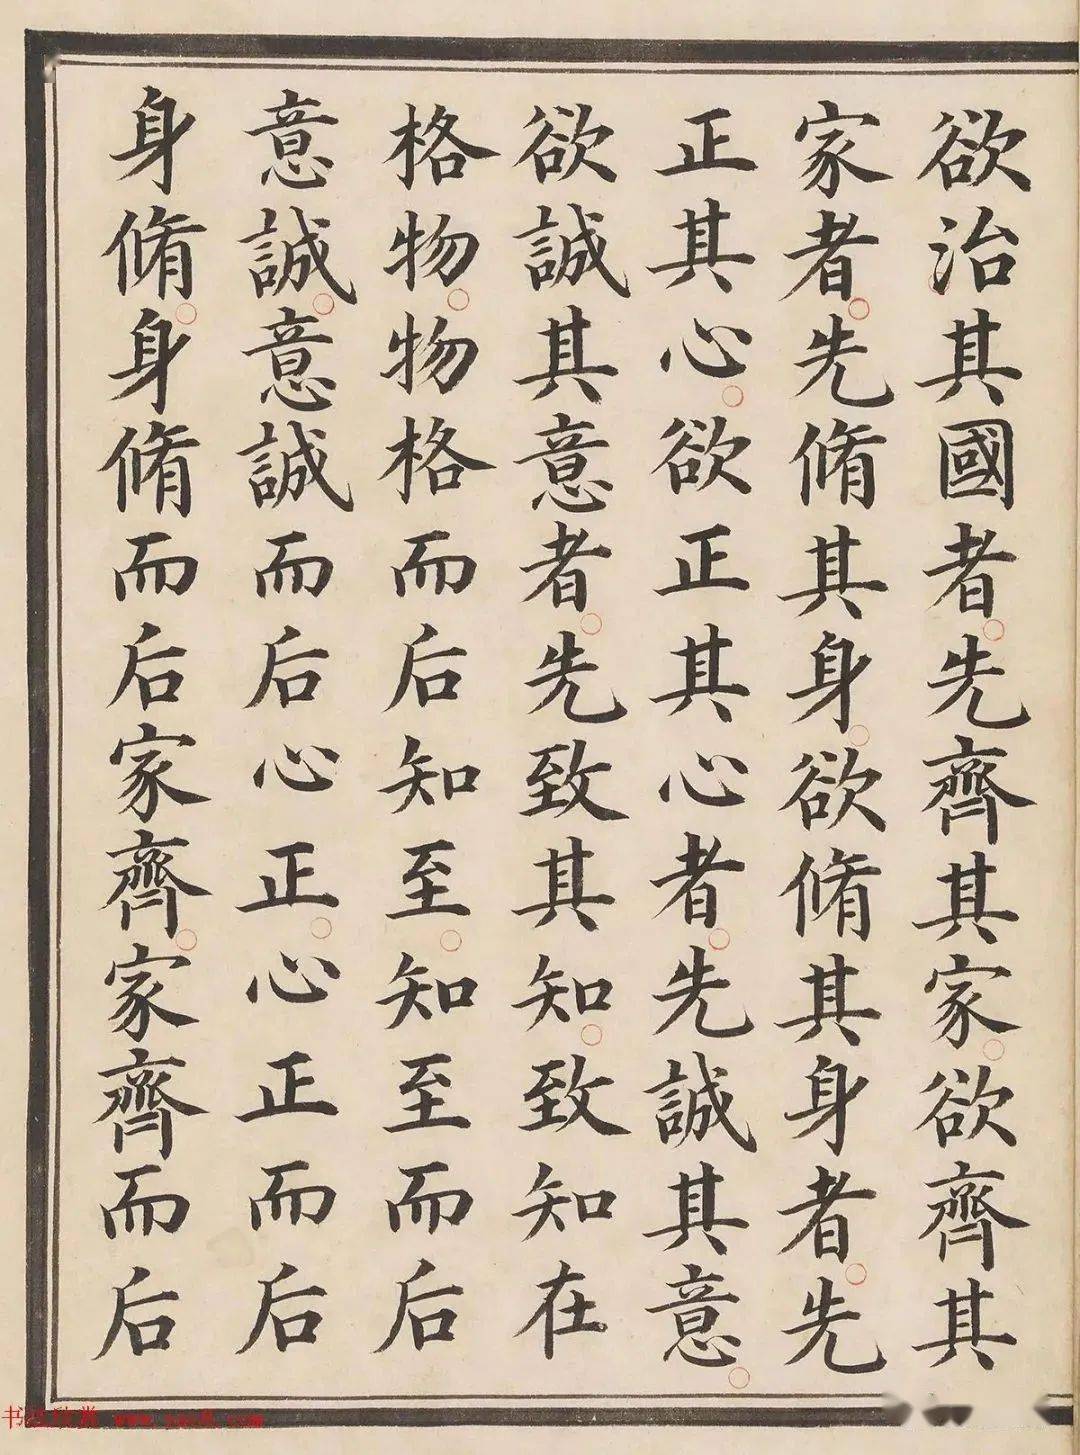 欲治其國者先齊其家欲齊其
家者先脩其身欲脩其身者先
正其心欲正其心者先誠其意
欲誠其意者先致其知致知在
格物物格而后知至知至而后
意誠意誠而后心正心正而后
身脩身脩而后家齊家齊而后